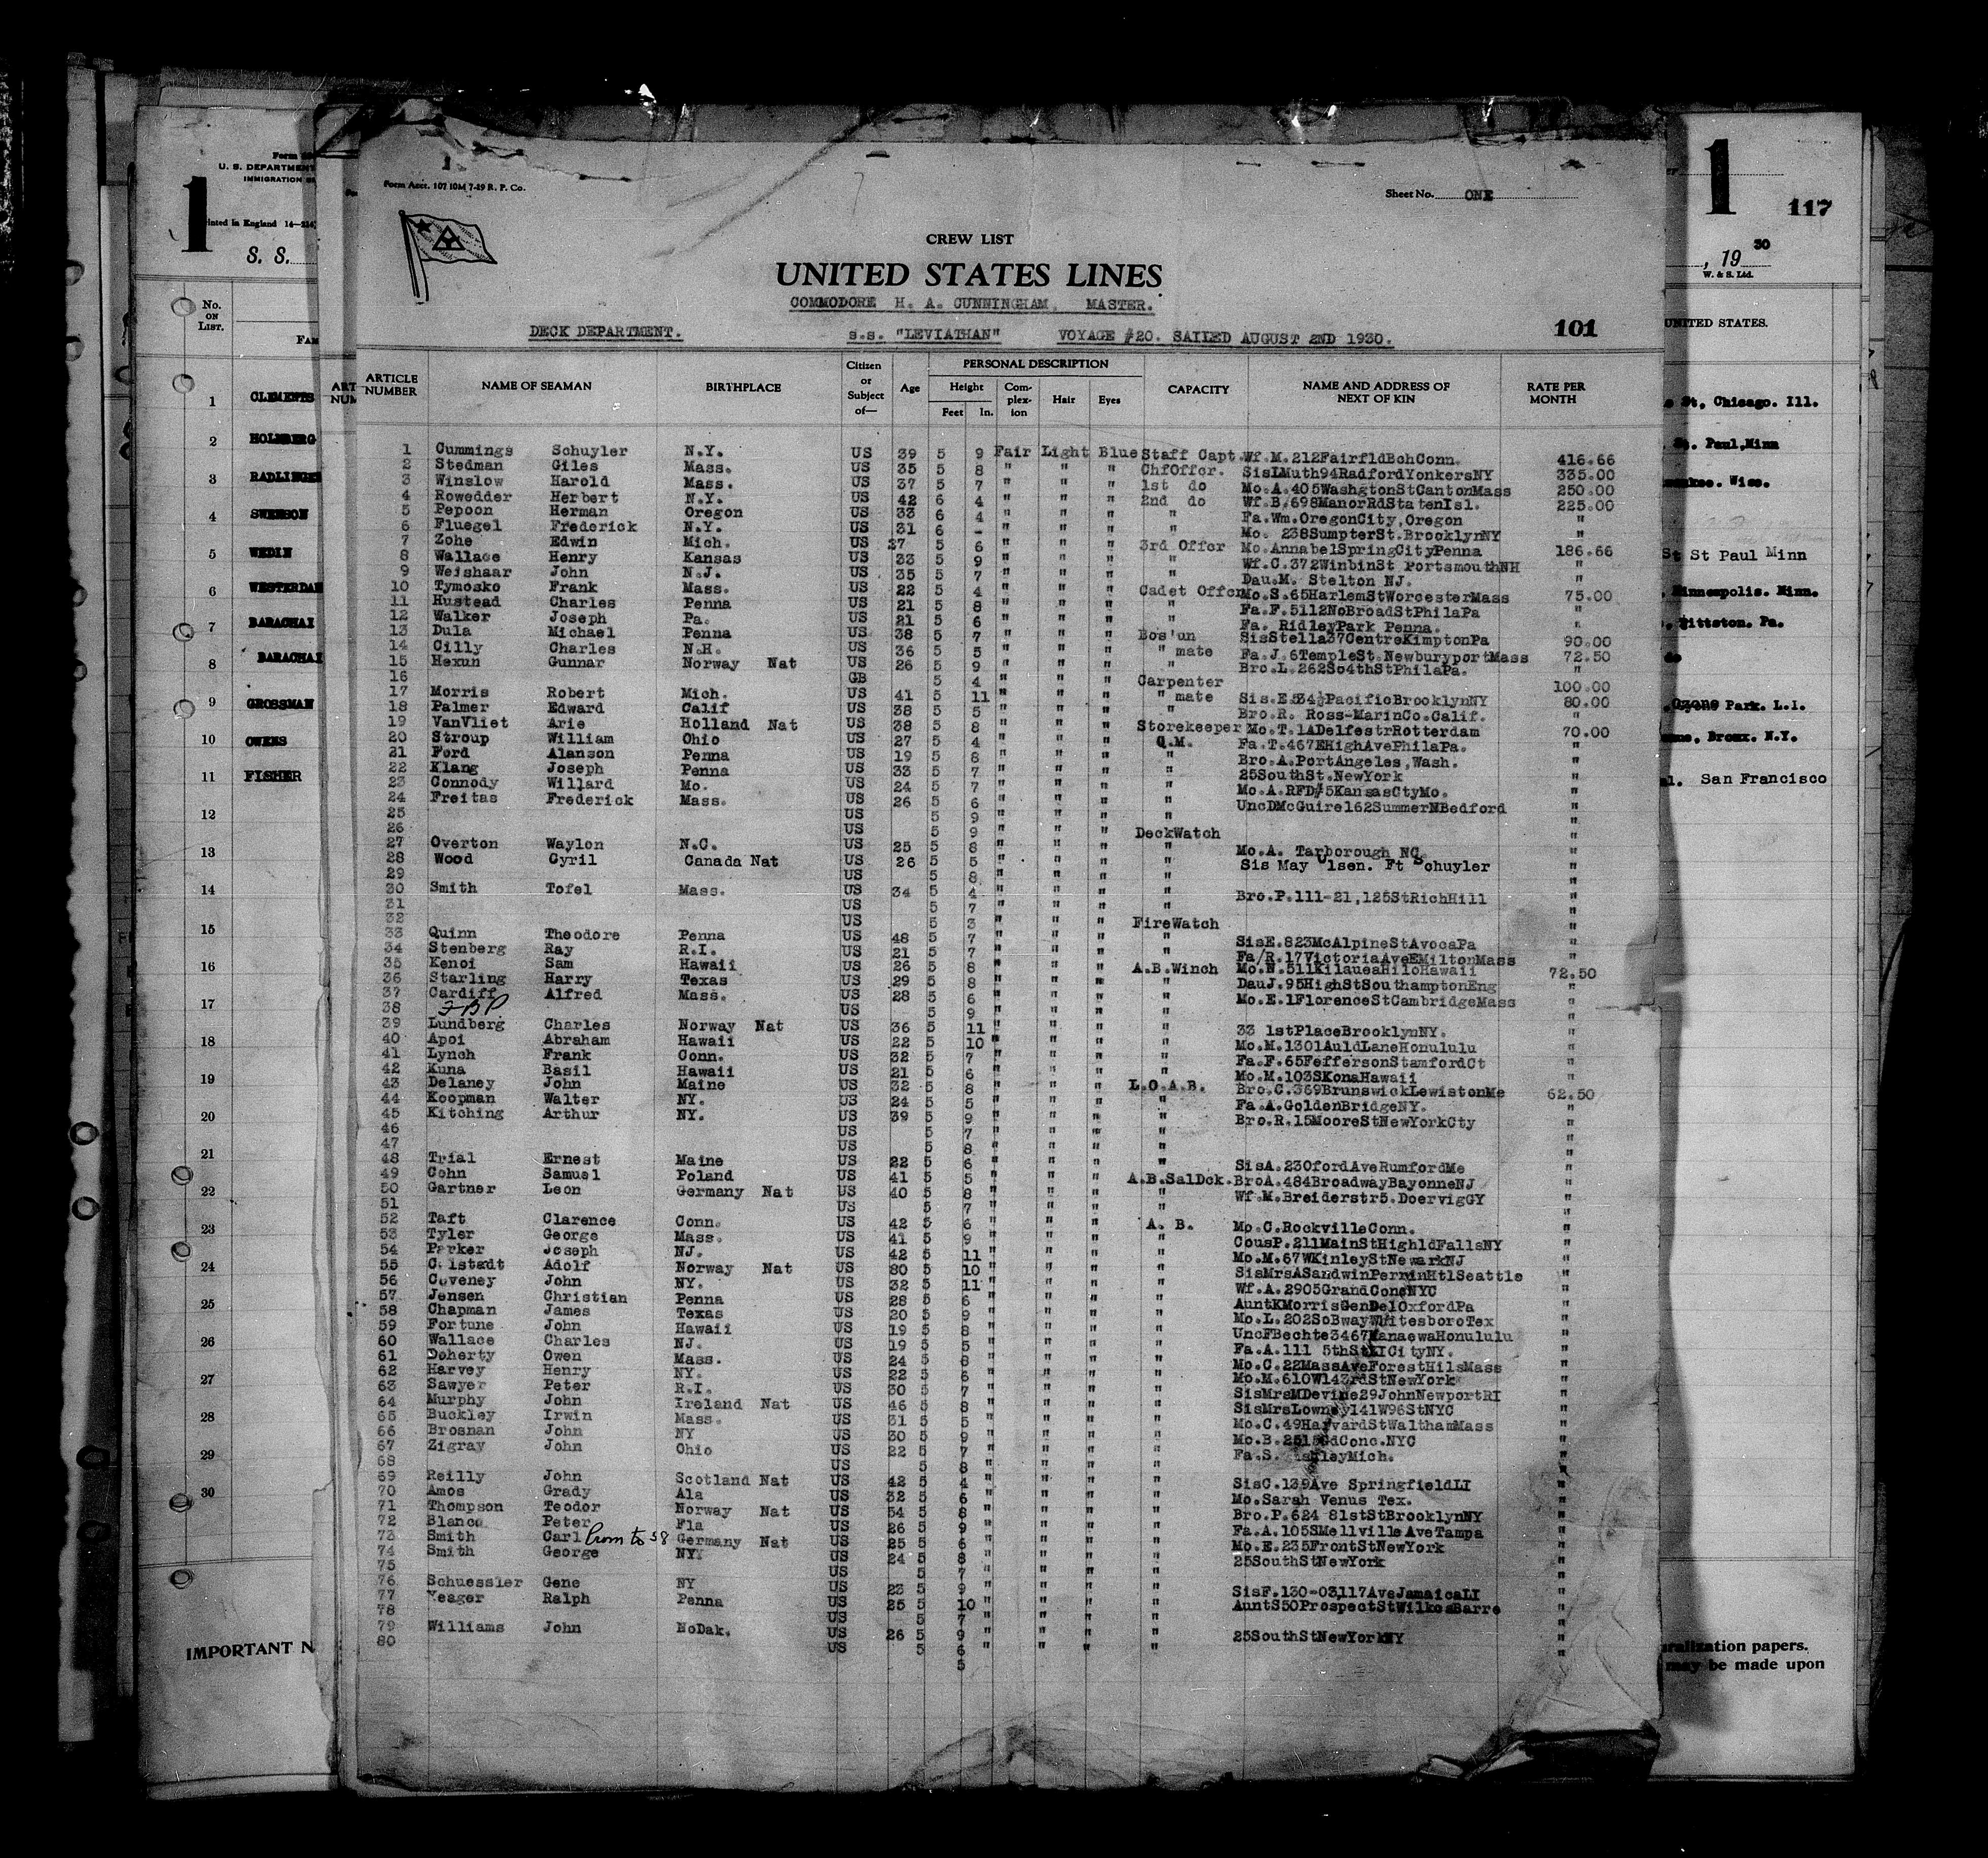 Form Acct. 107 10M 7-29 R. P. Co.
Sheet No. ONE
CREW LIST
UNITED STATES LINES
COMMODORE H. A. CUNNINGHAM, MASTER.
DECK DEPARTMENT. s.s. "LEVIATHAN" VOYAGE #20. SAILED AUGUST 2ND 1930. 101
ARTICLE NUMBER NAME OF SEAMAN BIRTHPLACE Citizen or Subject of— Age PERSONAL DESCRIPTION Height Feet In. Complexion Hair Eyes CAPACITY NAME AND ADDRESS OF NEXT OF KIN RATE PER MONTH
1 Cummings Schuyler N.Y. US 39 5 9 Fair Light Blue Staff Capt. Wf.M.212FairfldBchConn. 416.66
2 Stedman Giles Mass. US 35 5 8 " " " ChfOffcr. SisLMuth94RadfordYonkersNY 335.00
3 Winslow Harold Mass. US 37 5 7 " " " 1st do Mo.A.405WashgtonStCantonMass 250.00
4 Rowedder Herbert N.Y. US 42 6 4 " " " 2nd do Wf.B.698ManorRdStatenIsl. 225.00
5 Pepoon Herman Oregon US 33 6 4 " " " " Fa.Wm.OregonCity,Oregon "
6 Fluegel Frederick N.Y. US 31 6 - " " " " Mo. 238SumpterSt.BrooklynNY "
7 Zohe Edwin Mich. US 27 5 6 " " " 3rd Offcr Mo.AnnabelSpringCityPenna 186.66
8 Wallace Henry Kansas US 33 5 9 " " " " Wf.C.372WinbinSt PortsmouthNH "
9 Weishaar John N.J. US 35 5 7 " " " " Dau.M. Stelton NJ. "
10 Tymosko Frank Mass. US 22 5 4 " " " Cadet Offcr Mo.S.65HarlemStWorcesterMass 75.00
11 Hustead Charles Penna US 21 5 8 " " " " Fa.F.5112NoBroadStPhilaPa "
12 Walker Joseph Pa. US 21 5 6 " " " " Fa. RidleyPark Penna. "
13 Dula Michael Penna US 38 5 7 " " " Bos'un SisStella37CentreKimptonPa 90.00
14 Cilly Charles N.H. US 36 5 5 " " " " mate Fa.J.6TempleSt.NewburyportMass 72.50
15 Hexun Gunnar Norway Nat US 26 5 9 " " " " Bro.L.262So4thStPhilaPa. "
16 GB 5 4 " " " Carpenter 100.00
17 Morris Robert Mich. US 41 5 11 " " " " mate Sis.E.534½PacificBrooklynNY 80.00
18 Palmer Edward Calif US 38 5 5 " " " " Bro.R. Ross-MarinCo.Calif. "
19 VanVliet Arie Holland Nat US 38 5 8 " " " Storekeeper Mo.T.1ADelfestrRotterdam 70.00
20 Stroup William Ohio US 27 5 4 " " " Q.M. Fa.T.467EHighAvePhilaPa. "
21 Ford Alanson Penna US 19 5 8 " " " " Bro.A.PortAngeles,Wash. "
22 Klang Joseph Penna US 33 5 7 " " " " 25SouthSt.NewYork "
23 Connody Willard Mo. US 24 5 7 " " " " Mo.A.RFD#5KansasCtyMo. "
24 Freitas Frederick Mass. US 26 5 6 " " " " UncDMcGuire162SummerNBedford "
25 US 5 9 " " " " "
26 US 5 9 " " " DeckWatch "
27 Overton Waylon N.C. US 25 5 8 " " " " Mo.A. Tarborough NC "
28 Wood Cyril Canada Nat US 26 5 5 " " " " Sis May Ulsen. Ft Schuyler "
29 US 5 8 " " " " "
30 Smith Tofel Mass. US 34 5 4 " " " " Bro.P.111-21,125StRichHill "
31 US 5 7 " " " " "
32 US 5 3 " " " FireWatch "
33 Quinn Theodore Penna US 48 5 7 " " " " SisE.823McAlpineStAvocaPa "
34 Stenberg Ray R.I. US 21 5 7 " " " " Fa/R.17VictoriaAveEMiltonMass "
35 Kenoi Sam Hawaii US 26 5 8 " " " A.B.Winch Mo.N.511KilaueaHiloHawaii 72.50
36 Starling Harry Texas US 29 5 8 " " " " DauJ.95HighStSouthamptonEng "
37 Cardiff Alfred Mass. US 28 5 6 " " " " Mo.E.1FlorenceStCambridgeMass "
38 US 5 9 " " " " "
39 Lundberg Charles Norway Nat US 36 5 11 " " " " 33 1stPlaceBrooklynNY. "
40 Apoi Abraham Hawaii US 22 5 10 " " " " Mo.M.1301AuldLaneHonululu "
41 Lynch Frank Conn. US 32 5 7 " " " " Fa.F.65FeffersonStamfordCt "
42 Kuna Basil Hawaii US 21 5 6 " " " " Mo.M.103SKonaHawaii "
43 Delaney John Maine US 32 5 8 " " " L.O.A.B. Bro.C.369BrunswickLewistonMe 62.50
44 Koopman Walter NY. US 24 5 5 " " " " Fa.A.GoldenBridgeNY. "
45 Kitching Arthur NY. US 39 5 9 " " " " Bro.R.15MooreStNewYorkCty "
46 US 5 7 " " " " "
47 US 5 8 " " " " "
48 Trial Ernest Maine US 22 5 6 " " " " SisA.230fordAveRumfordMe "
49 Cohn Samuel Poland US 41 5 5 " " " A.B.SalDck. BroA.484BroadwayBayonneNJ "
50 Gartner Leon Germany Nat US 40 5 8 " " " " Wf.M.Breiderstr5.DoervigGY "
51 US 5 7 " " " " "
52 Taft Clarence Conn. US 42 5 6 " " " A. B. Mo.C.RockvilleConn. "
53 Tyler George Mass. US 41 5 9 " " " " CousP.211MainStHighldFallsNY "
54 Parker Joseph NJ. US 42 5 11 " " " " Mo.M.67WKinleyStNewarkNJ "
55 Adolf Norway Nat US 80 5 10 " " " " SisMrsASandwinPerrinHtlSeattle "
56 Coveney John NY. US 32 5 11 " " " " Wf.A.2905GrandConcNYC "
57 Jensen Christian Penna US 28 5 6 " " " " AuntKMorrisGenDelOxfordPa "
58 Chapman James Texas US 20 5 9 " " " " Mo.L.202SoBwayWhitesboroTex "
59 Fortune John Hawaii US 19 5 8 " " " " UncFBechte3467ManaewaHonululu "
60 Wallace Charles NJ. US 19 5 5 " " " " Fa.A.111 5thStLICityNY. "
61 Doherty Owen Mass. US 24 5 8 " " " " Mo.C.22MassAveForestHilsMass "
62 Harvey Henry NY. US 22 5 6 " " " " Mo.M.610W143rdStNewYork "
63 Sawyer Peter R.I. US 30 5 7 " " " " SisMrsMDevine29JohnNewportRI "
64 Murphy John Ireland Nat US 46 5 8 " " " " SisMrsLowney141W96StNYC "
65 Buckley Irwin Mass. US 31 5 5 " " " " Mo.C.49HarvardStWalthamMass "
66 Brosnan John NY US 30 5 9 " " " " Mo.B. NYC "
67 Zigray John Ohio US 22 5 7 " " " " Fa.S. Mich. "
68 US 5 8 " " " " "
69 Reilly John Scotland Nat US 42 5 4 " " " " SisC.139Ave SpringfieldLI "
70 Amos Grady Ala US 32 5 6 " " " " Mo.Sarah Venus Tex. "
71 Thompson Teodor Norway Nat US 54 5 8 " " " " Bro.P.624 81stStBrooklynNY "
72 Blanco Peter Fla US 26 5 9 " " " " Fa.A.105SMellvilleAveTampa "
73 Smith Carl Prom to 38 Germany Nat US 25 5 6 " " " " Mo.E.235FrontStNewYork "
74 Smith George NYY US 24 5 8 " " " " 25SouthStNewYork "
75 US 5 7 " " " " "
76 Schuessler Gene NY US 23 5 9 " " " " SisF.130-03,117AveJamaicaLI "
77 Yeager Ralph Penna US 25 5 10 " " " " AuntS50ProspectStWilkesBarre "
78 US 5 7 " " " " "
79 Williams John NoDak. US 26 5 9 " " " " 25SouthStNewYorkNY "
80 US 5 6 " " " " "
5
1
U. S. DEPARTMENT
IMMIGRATION
Printed in England
S. S.
No. ON LIST.
1 CLEMENTS
2 HOLMBERG
3 RADLINGER
4 SWENSON
5 WEDIN
6 WESTERDAH
7 BARACHAI
8 BARACHAI
9 GROSSMAN
10 OWENS
11 FISHER
12
13
14
15
16
17
18
19
20
21
22
23
24
25
26
27
28
29
30
IMPORTANT N
1 117
, 19 30
W. & S. Ltd.
UNITED STATES.
St, Chicago. Ill.
St. Paul,Minn
Wisc.
St St Paul Minn
Minneapolis. Minn.
Pittston. Pa.
do
Ozone Park. L.I.
Bronx. N.Y.
San Francisco
naturalization papers.
may be made upon